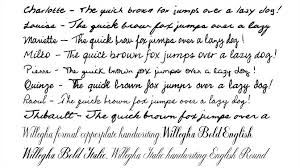 Charlotte - The quick brown fox jumps over a lazy dog!
Louise - The quick brown fox jumps over a lazy
Mariette - The quick brow fox jumps over a lazy dog!
Miléo - The quick brown fox jumps over a lazy dog!
Pierre - The quick brown fox jumps over a lazy dog!
Quinze - The quick brown fox jumps over a lazy dog!
Raoul - The quick brown fox jumps over a lazy dog!
Thibault - The quick brown fox jumps over a
Willegha formal copperplate handwriting Willegha Bold English
Willegha Bold Italic. Willegha Italic handwriting English Round